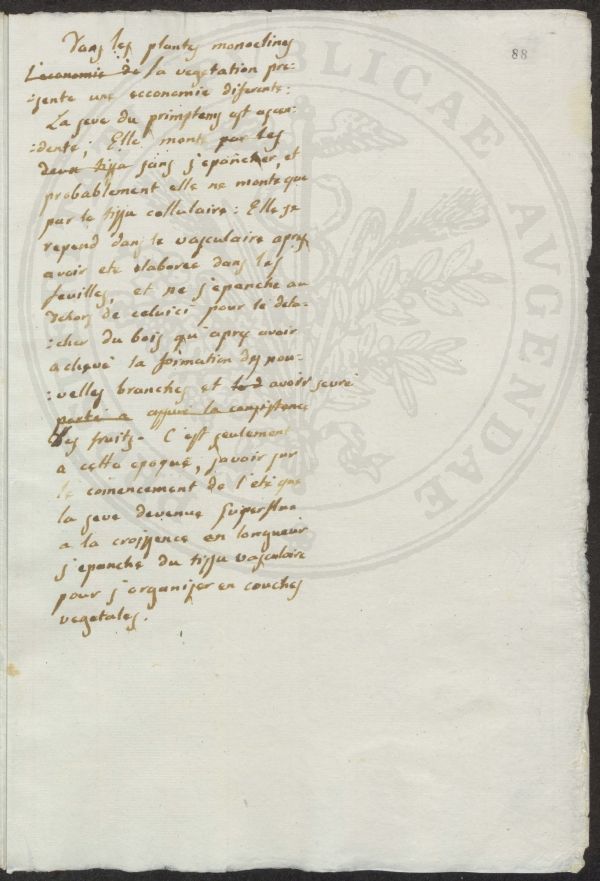 88
Dans les plantes monoclines
L'economie de la vegetation pre:
:sente une œcconomie diferente:
La seve du primptems est ascen:
:dente; Elle monte par les
deux tissu sans s'epancher, et
probablement elle ne monte que
par le tissu cellulaire: Elle se
repend dans le vasculaire apres
avoir eté elaboree dans les
feuilles, et ne s'epanche au
dehors de celuici pour le deta:
:cher du bois qu'apres avoir
achevé la formation des nou:
:velles branches et avoir
a assuré la consistence
des fruits. C'est seulement
a cette epoque, savoir sur
le comencement de l'eté que
la seve devenue superflue
a la croissence en longueur
s'epanche du tissu vasculaire
pour s'organiser en couches
vegetales.
PUBLICAE AVGENDAE